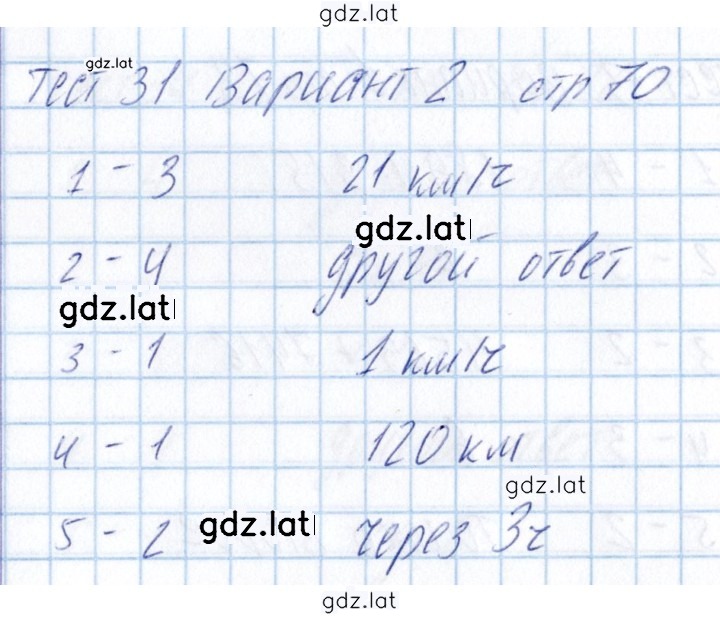 gdz.lat
gdz.lat
Тест 31 Вариант 2 стр 70
1 - 3 21 км/ч
gdz.lat
2 - 4 другой ответ
gdz.lat
3 - 1 1 км/ч
4 - 1 120 км
gdz.lat
5 - 2 gdz.lat через 3ч
gdz.lat